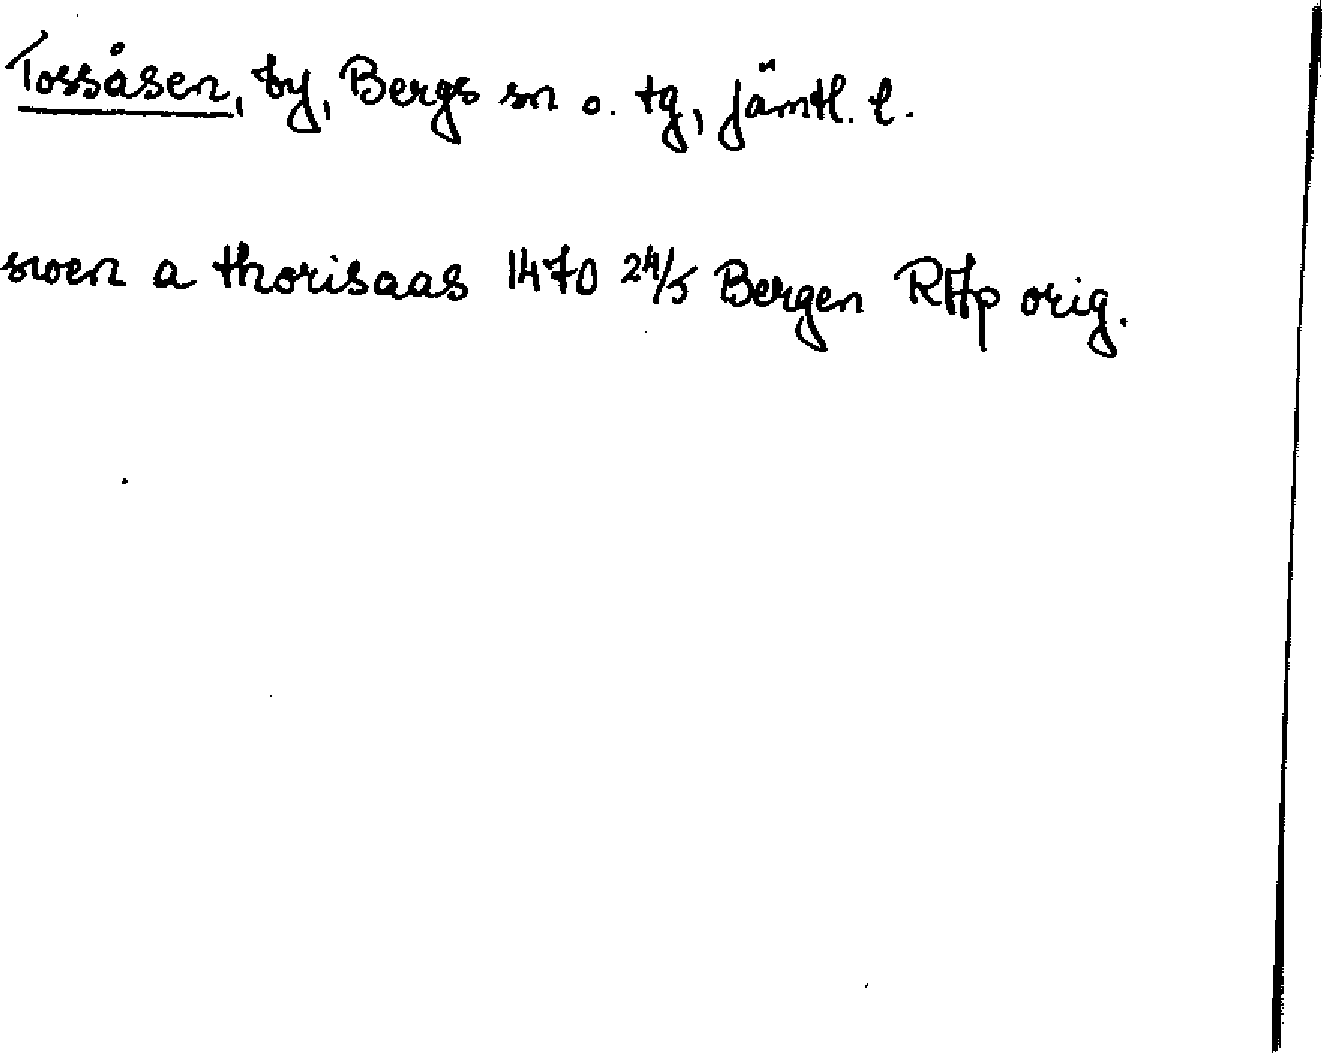 Tossåsen, by, Bergs sn o. tg, Jämtl. l.
swen a thorisaas 1470 24/5 Bergen RAp orig.